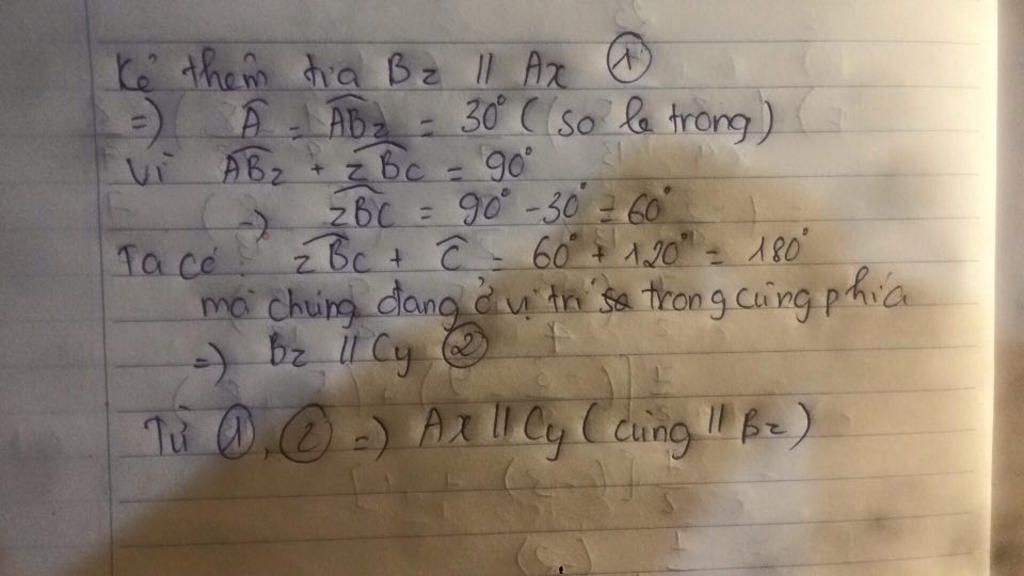 Kẻ thêm tia Bz // Ax ①
=) Â = ABz = 30° ( so le trong)
Vì ABz + zBC = 90°
=) zBC = 90° - 30° = 60°
Ta có : zBc + C = 60° + 120° = 180°
mà chúng đang ở vị trí trong cùng phía
=) Bz // Cy ②
Từ ①, ② =) Ax // Cy ( cùng // Bz )